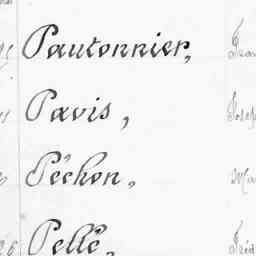 Pautonnier,
Pavis,
Péchon,
Pellé,